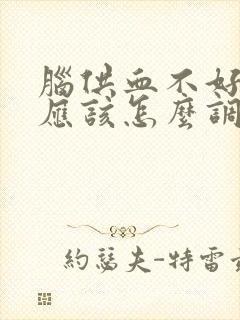 腦供血不好
應該怎麼調
約瑟夫-特雷